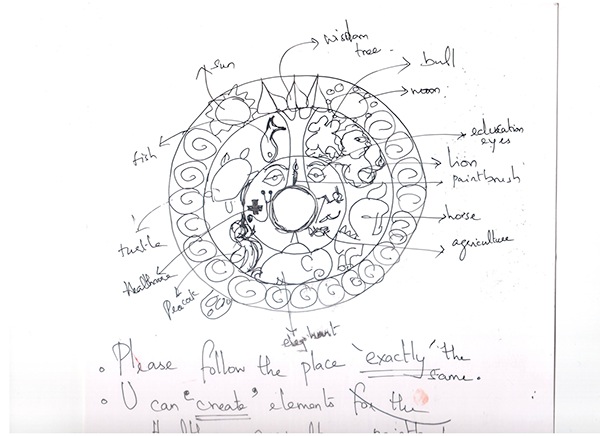 wisdom
tree
sun
bull
moon
education
eyes
fish
lion
paintbrush
horse
turtle
agriculture
healthcare
Peacock
elephant
• Please follow the place 'exactly' the
same.
• U can "create" elements for the